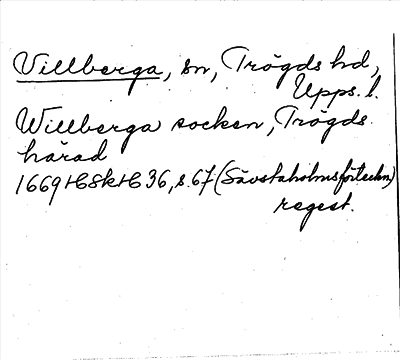 Villberga, sn, Trögds hd,
Upps. l.
Willberga socken, Trögds
härad
1669 HSH 36, s. 67 (Sävstaholmsförteckn.)
regest.